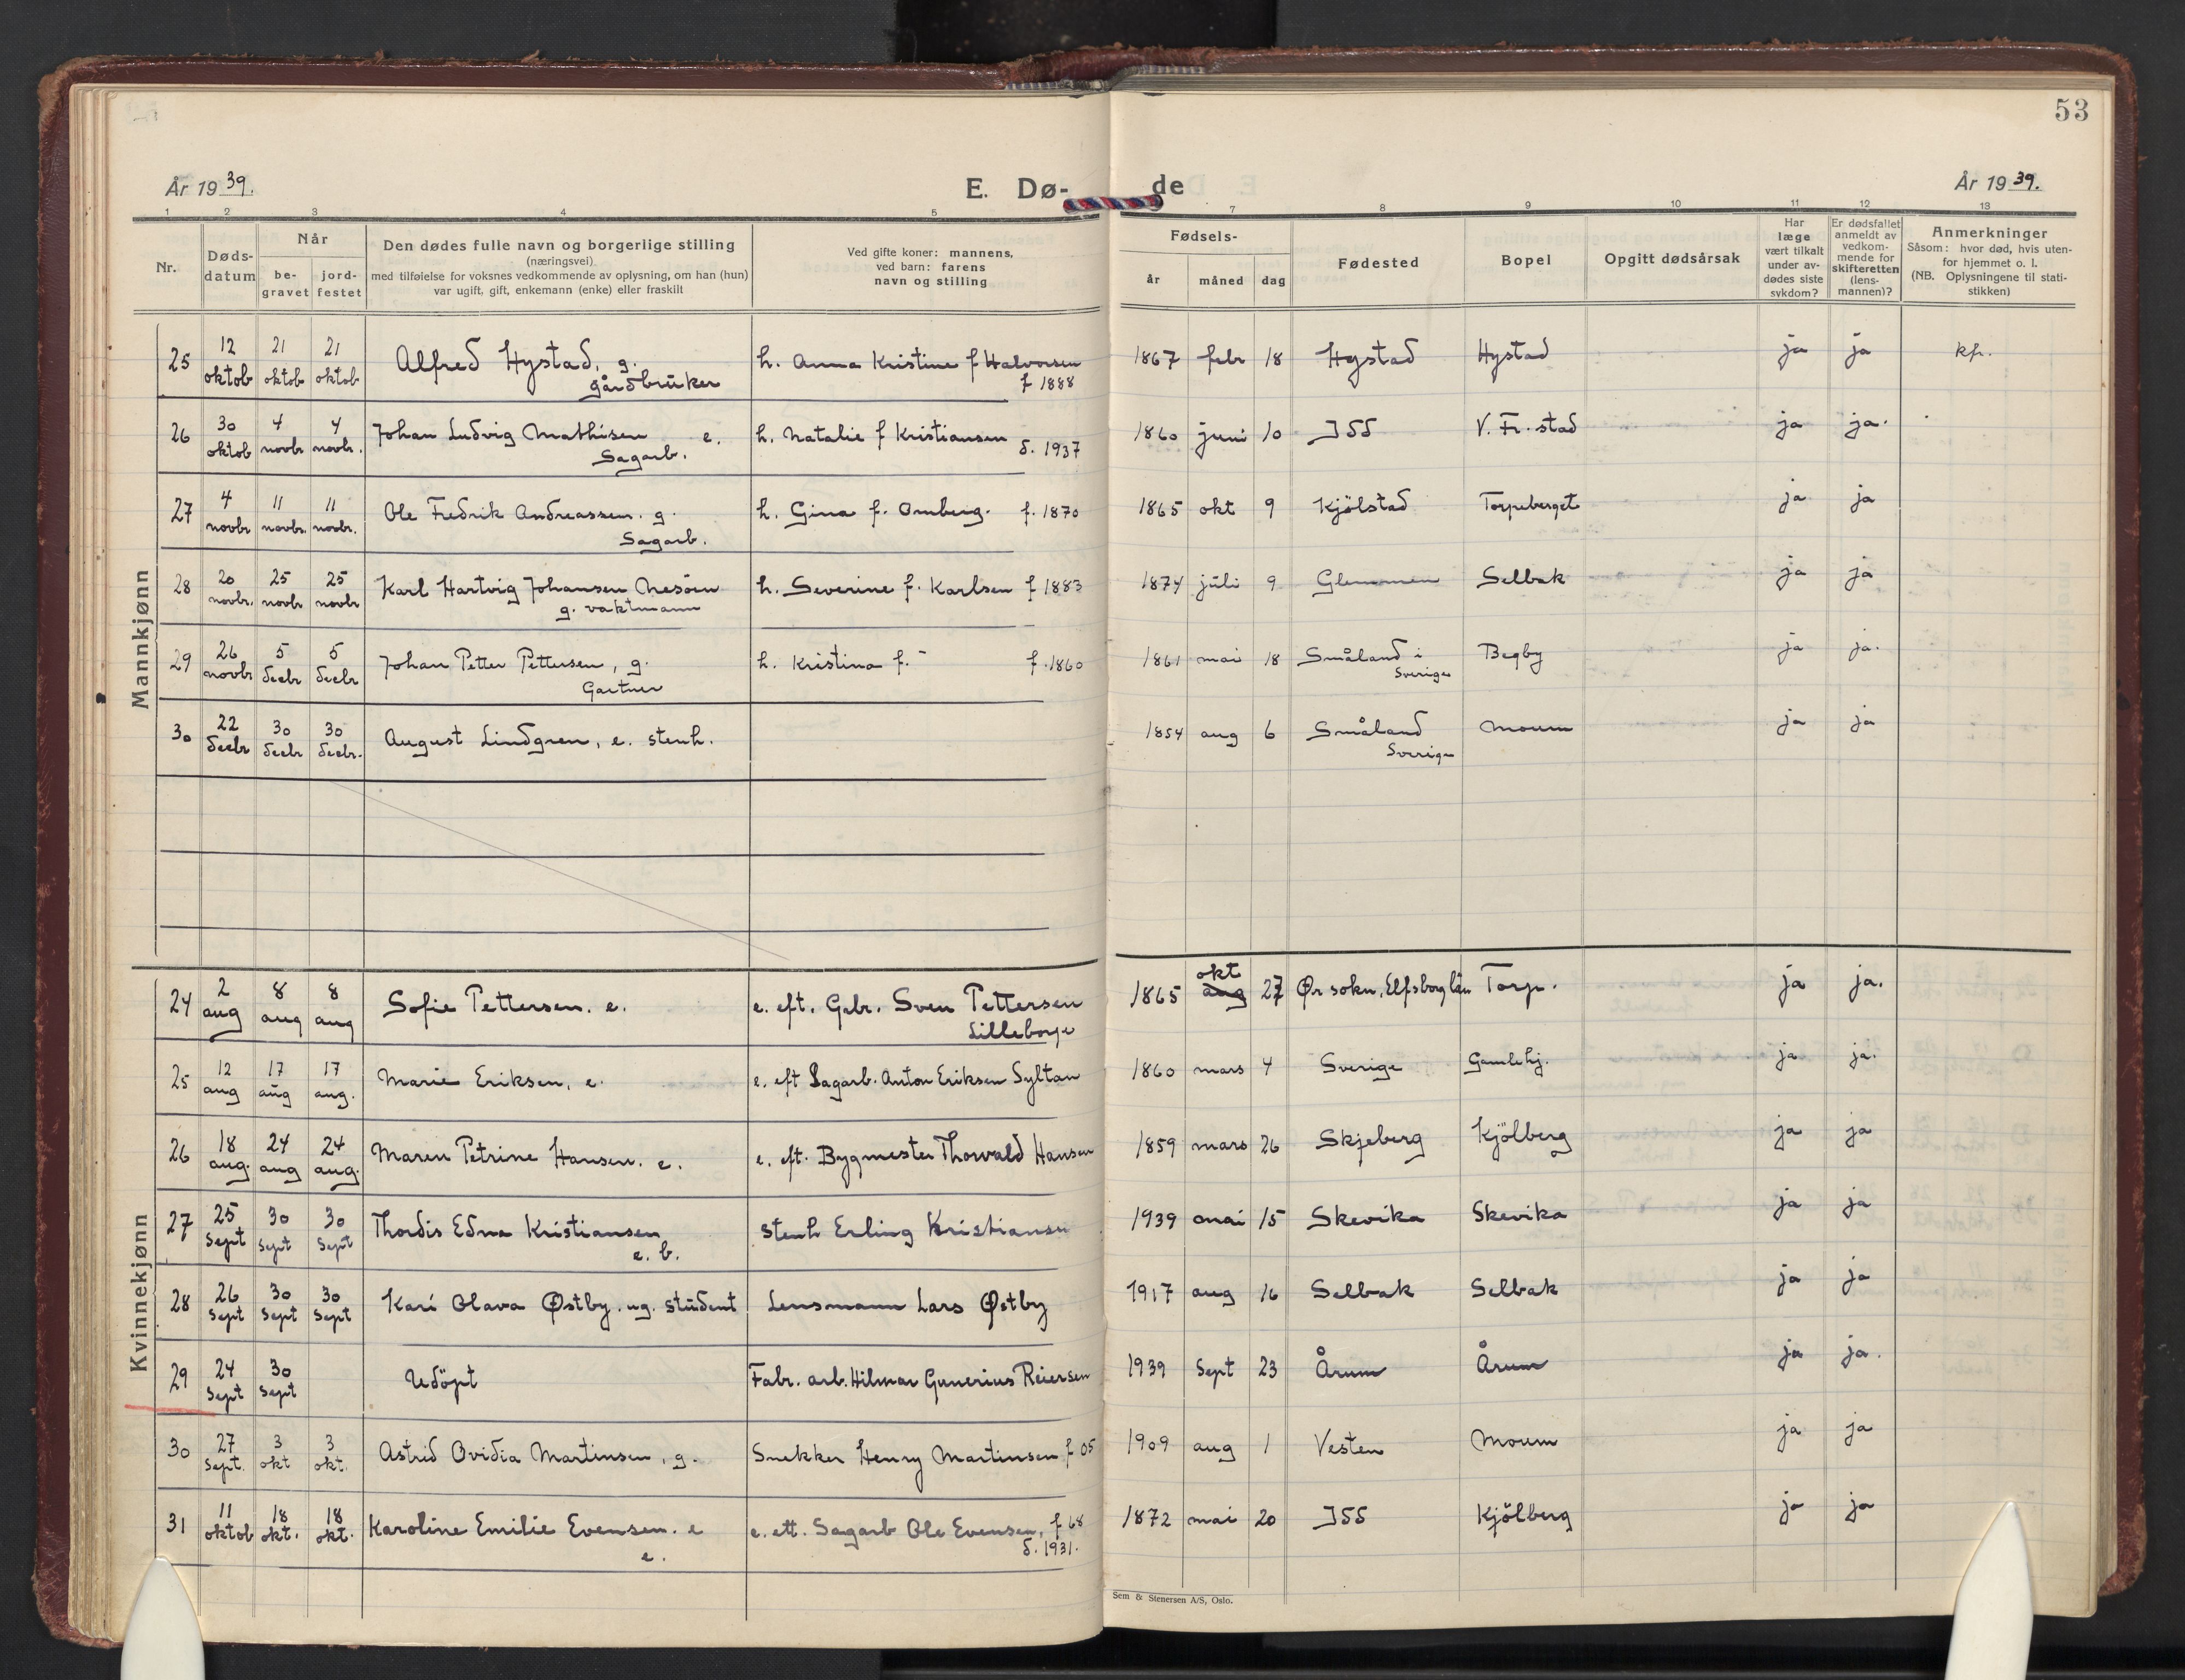 53
År 19 39.
E. Dø-
de
År 19 39.
1 2 3 4 5 7 8 9 10 11 12 13
Nr.
Døds-
datum
Når
be-
gravet
jord-
festet
Den dødes fulle navn og borgerlige stilling
(næringsvei)
med tilføielse for voksnes vedkommende av oplysning, om han (hun)
var ugift, gift, enkemann (enke) eller fraskilt
Ved gifte koner: mannens,
ved barn: farens
navn og stilling
Fødsels-
år måned dag
Fødested
Bopel
Opgitt dødsårsak
Har
læge
vært tilkalt
under av-
dødes siste
sykdom?
Er dødsfallet
anmeldt av
vedkom-
mende for
skifteretten
(lens-
mannen)?
Anmerkninger
Såsom: hvor død, hvis uten-
for hjemmet o. l.
(NB. Oplysningene til stati-
stikken)
Mannkjønn
25 12 oktob 21 oktob 21 oktob Alfred Hystad, g. gårdbruker h. Anna Kristine f Halvorsen f 1888 1867 febr 18 Hystad Hystad ja ja kfr.
26 30 oktob 4 novbr 4 novbr. Johan Ludvig Mathisen e. Sagarb. h. Natalie f Kristiansen d. 1937 1860 juni 10 Idd V. Fr.stad ja ja.
27 4 novbr 11 novbr. 11 novbr. Ole Fredrik Andreassen. g. Sagarb. h. Gina f. Omberg. f. 1870 1865 okt 9 Kjölstad Torpeberget ja ja
28 20 novbr. 25 novbr 25 novbr Karl Hartvig Johansen Nesöen g. vaktmann h. Severine f. Karlsen f 1883 1874 juli 9 Glemmen Selbak ja ja
29 26 novbr 5 decbr 5 decbr Johan Petter Pettersen, g. Gartner h. Kristina f. - f. 1860 1861 mai 18 Småland i Sverige Begby ja ja.
30 22 decbr 30 decbr 30 decbr. August Lindgren, e. stenh. 1854 aug 6 Småland Sverige Moum ja ja
Kvinnekjønn
24 2 aug 8 aug 8 aug Sofie Pettersen. e. e. eft. Gbr. Sven Pettersen Lilleborge 1865 okt aug 27 Ør sokn, Elfsborg län Torp. ja ja.
25 12 aug 17 aug 17 aug. Marie Eriksen, e. e. eft Sagarb. Anton Eriksen Syltan 1860 mars 4 Sverige Gamlehj. ja ja.
26 18 aug. 24 aug 24 aug. Maren Petrine Hansen. e. e. eft. Bygmester Thorvald Hansen 1859 mars 26 Skjeberg Kjölberg ja ja
27 25 Sept 30 Sept 30 Sept Thordis Edna Kristiansen e. b. stenh Erling Kristiansen 1939 mai 15 Skevika Skevika ja ja
28 26 Sept 30 Sept 30 Sept Kari Olava Østby. ug. student Lensmann Lars Østby 1917 aug 16 Selbak Selbak ja ja
29 24 Sept 30 Sept Udöpt Fabr. arb. Hilmar Gunerius Reiersen 1939 Sept 23 Årum Årum ja ja.
30 27 Sept. 3 okt 3 okt. Astrid Ovidia Martinsen, g. Snekker Henry Martinsen f 05 1909 aug 1 Vesten Moum ja ja
31 11 oktob 18 okt. 18 okt. Karoline Emilie Evensen. e e. e. ett. Sagarb Ole Evensen, f 68 d. 1931. 1872 mai 20 Idd Kjölberg ja ja
Sem & Stenersen A/S, Oslo.